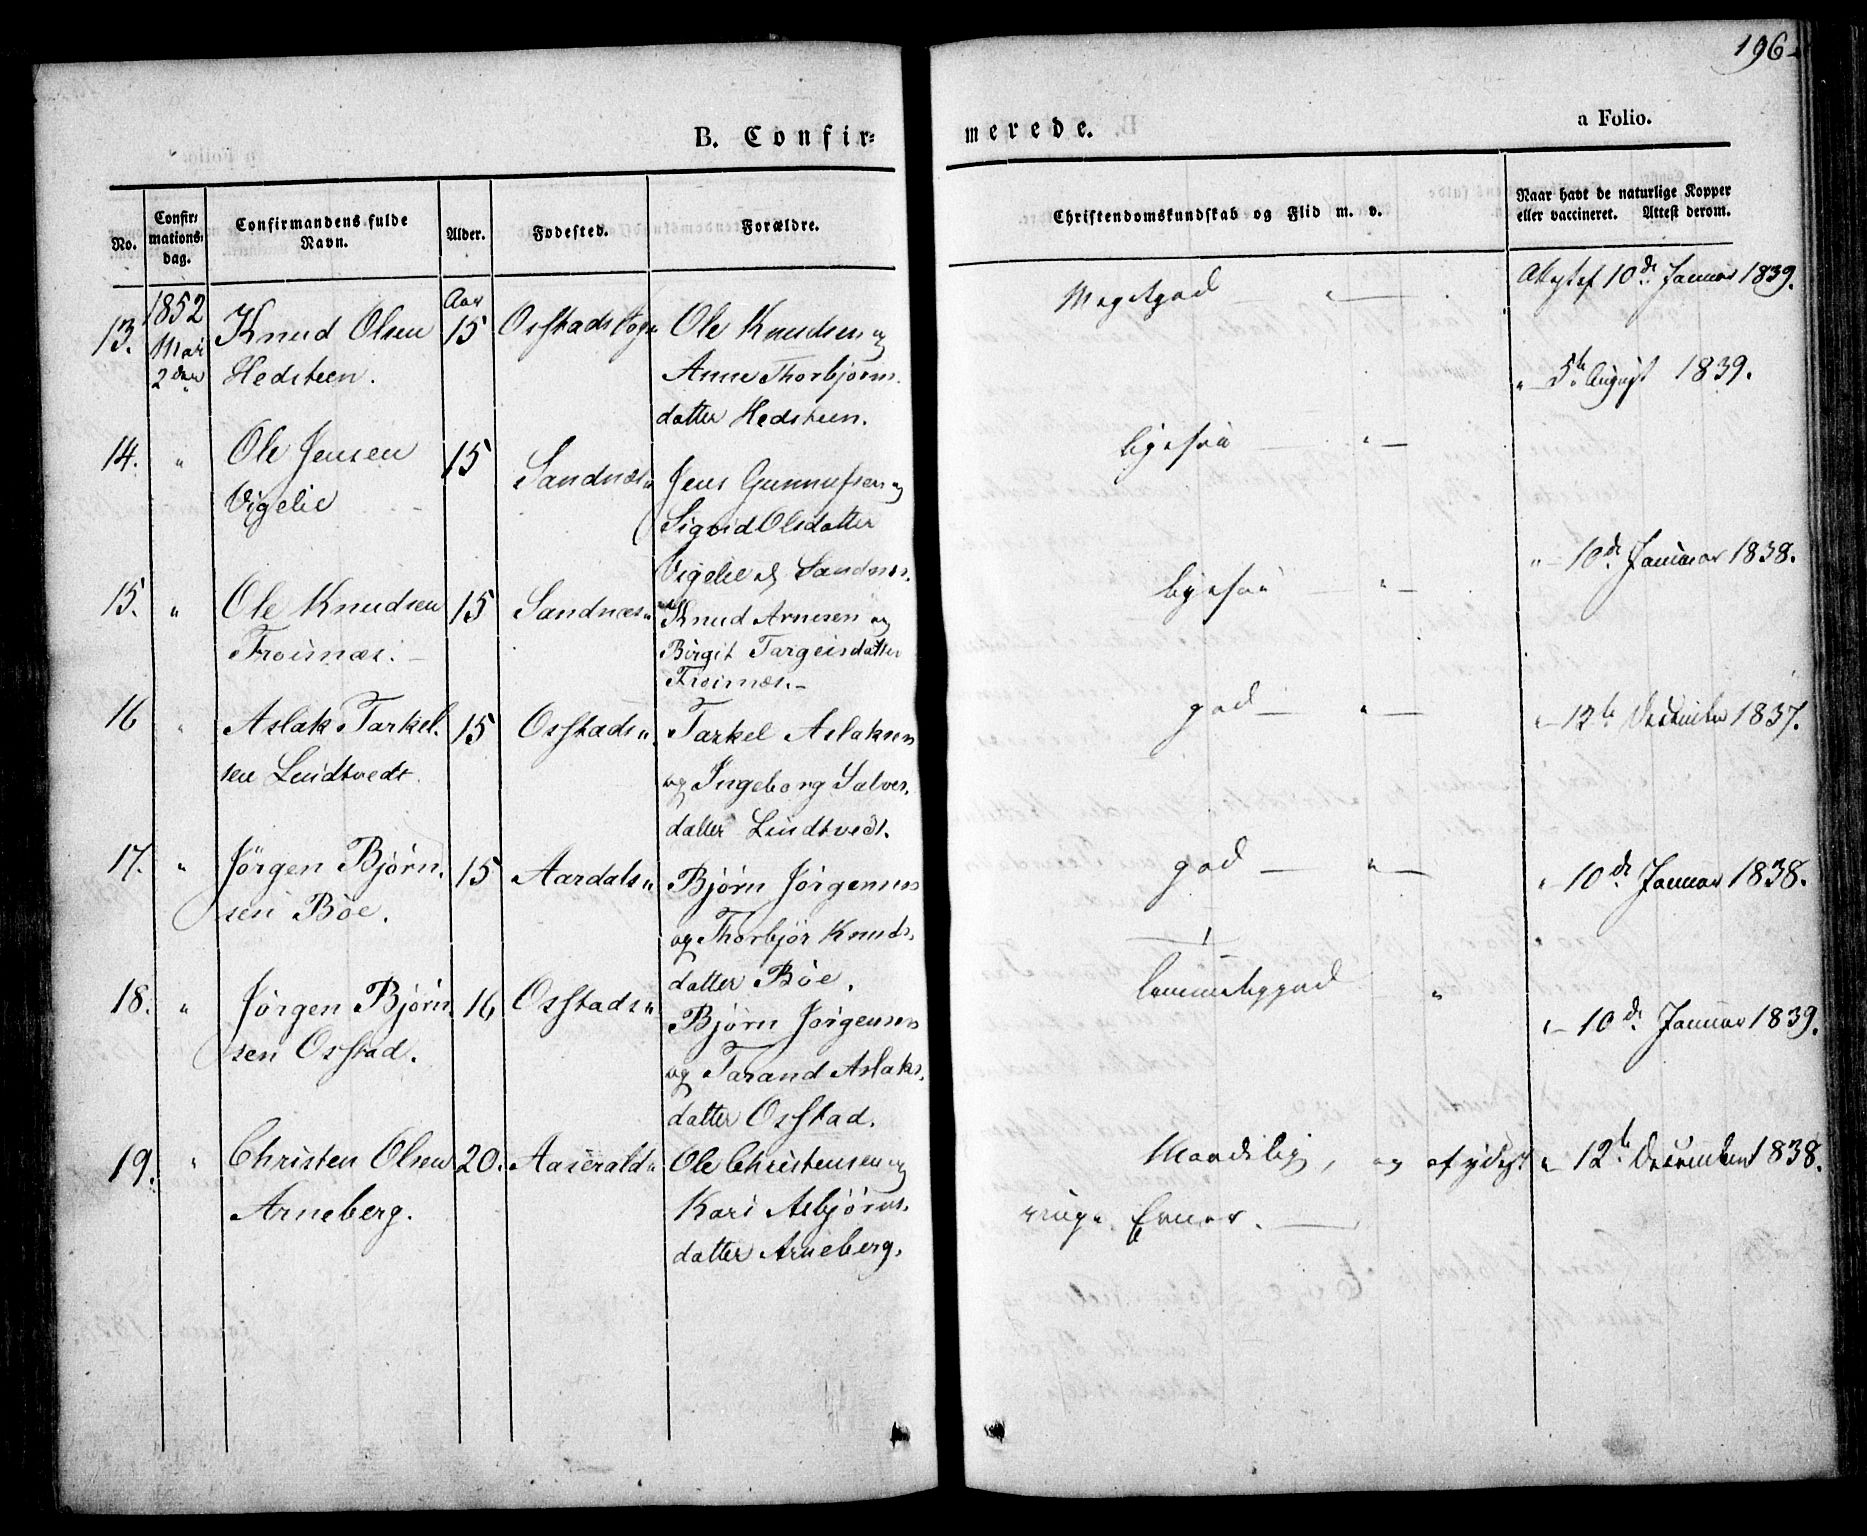 196
B. Confir=
merede.
a Folio.
No.
Confir=
mations=
dag.
Confirmandens fulde
Navn.
Alder.
Fødested.
Forældre.
Christendomskundskab og Flid m. v.
Naar havt de naturlige Kopper
eller vaccineret. Attest derom.
13.
1852
Mai
2den
Knud Olsen
Hedsteen.
Aar
15
Osstads Sogn
Ole Knudsen og
Anne Thorbjørns
datter Hedsteen.
Meget god — " —
Attest 10de Januar 1839.
14.
"
Ole Jensen
Vigelie
15
Sandnæs "
Jens Gunnufsen og
Sigrid Olsdatter
Vigelie af Sandnæs.
ligesaa — " —
" — 5te August 1839.
15.
"
Ole Knudsen
Froisnæs. —
15
Sandnæs "
Knud Arnesen og
Birgit Targeisdatter
Froisnæs. —
ligesaa — " —
" — 10de Januar 1838.
16
"
Aslak Tarkel.
sen Lindtvedt.
15
Osstads "
Tarkel Aslaksen
og Ingeborg Salves.
datter Lindtvedt.
god — " —
" — 12te December 1837.
17.
"
Jørgen Bjørn.
sen Bøe.
15
Aardals "
Bjørn Jørgensen
og Thorbjør Knuds.
datter Bøe.
god — " —
" 10de Januar 1838.
18.
"
Jørgen Bjørn
sen Osstad.
16
Osstads "
Bjørn Jørgensen
og Tarand Aslaks.
datter Osstad.
temmelig god "
" — 10de Januar 1839.
19.
"
Christen Olsen
Arneberg.
20.
Aaserald "
Ole Christensen og
Kari Asbjørns.
datter Arneberg.
Maadelig, og
ringe Evner. —
" 12te December 1838.